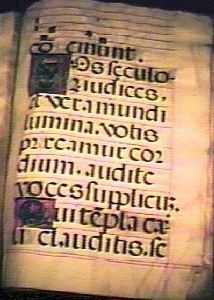 cinunt.
Vos seculo-
iudices,
et vera mundi
lumina. votis
precamur cor
dium. audite
voces supplicu.
Qui tẽpla cæ
li clauditis. se